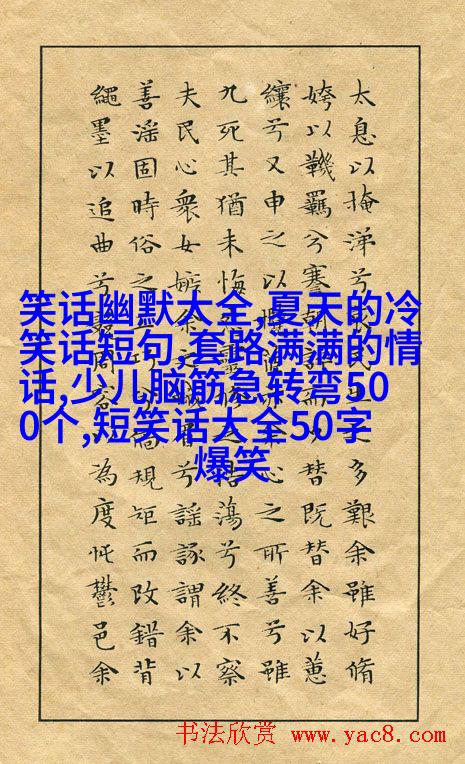 太息以掩涕兮民生之多艱余雖好脩
姱以鞿羈兮謇朝誶而夕替既替余以蕙
纕兮又申之以亦余心之所善兮雖
九死其猶未悔靈之浩蕩兮終不察
夫民心衆女嫉余之兮謡諑謂余以
善淫固時俗之巧規矩而改錯背
繩墨以追曲兮周容為度忳鬱邑余
笑话幽默大全,夏天的冷
笑话短句,套路满满的情
话,少儿脑筋急转弯50
0个,短笑话大全50字
爆笑
书法欣赏 www.yac8.com